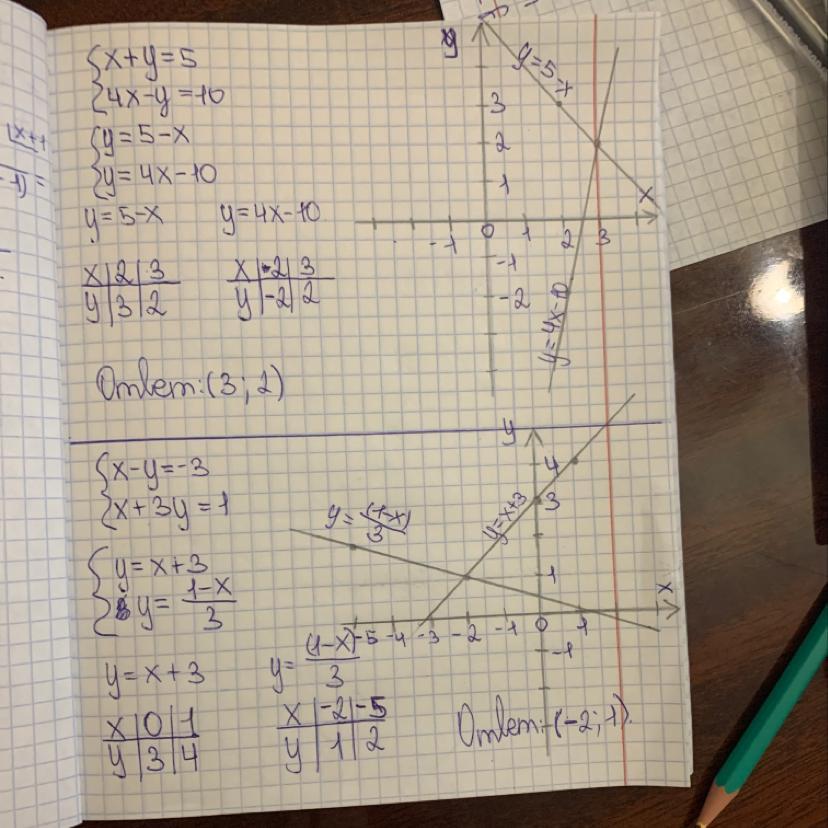 {x+y=5
{4x-y=10
{y=5-x
{y=4x-10
y=5-x y=4x-10
x|2|3
y|3|2
x|2|3
y|-2|2
Ответ:(3; 2)
y
y=5-x
3
2
1
x
-1 0 1 2 3
-1
-2
y=4x-10
{x-y=-3
{x+3y=1
{y=x+3
{y=(1-x)/3
y=x+3
y=(1-x)/3
x|0|1
y|3|4
x|-2|-5
y|1|2
y
4
3
y=(1-x)/3
y=x+3
1
x
-5 -4 -3 -2 -1 0 1
-1
Ответ:(-2; 1).